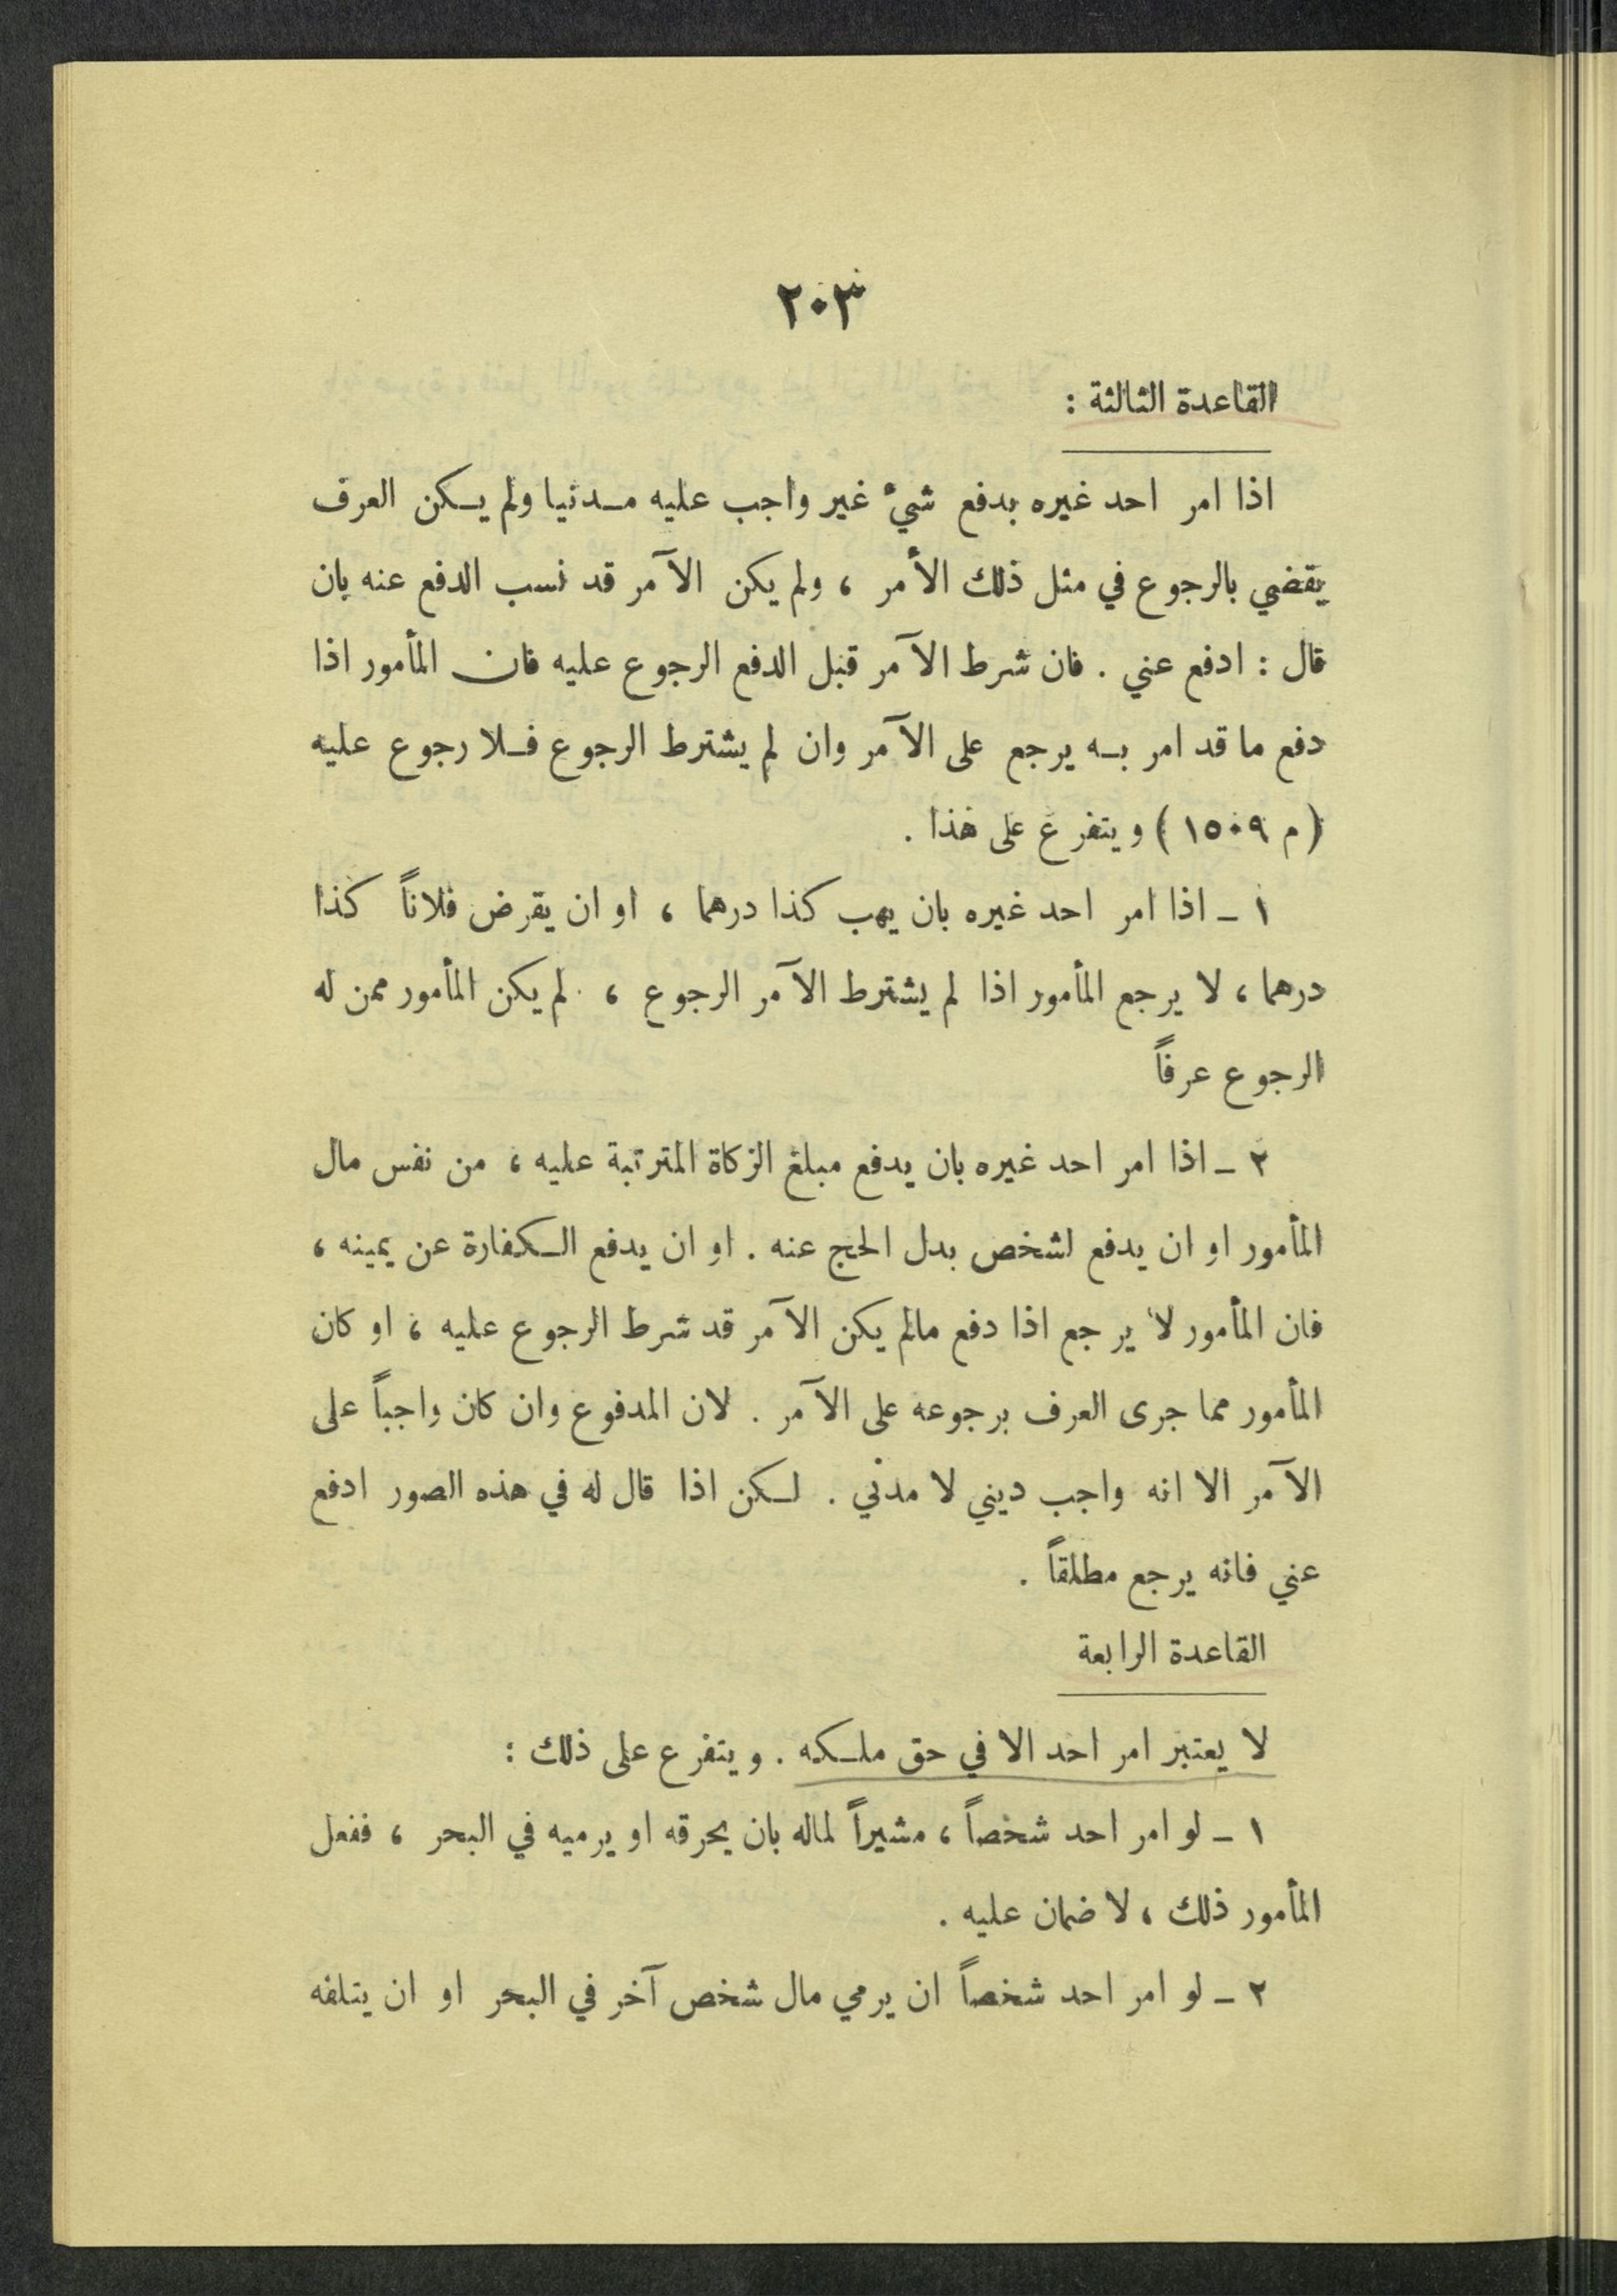 ٢٠٣
القاعدة الثالثة :
اذا امر احد غيره بدفع شيء غير واجب عليه مدنيا ولم يكن العرف
يقضي بالرجوع في مثل ذلك الأمر ، ولم يكن الآمر قد نسب الدفع عنه بان
قال : ادفع عني . فان شرط الآمر قبل الدفع الرجوع عليه فان المأمور اذا
دفع ما قد امر به يرجع على الآمر وان لم يشترط الرجوع فلا رجوع عليه
( م ١٥٠٩ ) ويتفرع على هذا .
١ - اذا امر احد غيره بان يهب كذا درهما ، او ان يقرض فلاناً كذا
درهما ، لا يرجع المأمور اذا لم يشترط الآمر الرجوع ، لم يكن المأمور ممن له
الرجوع عرفاً
٢ - اذا امر احد غيره بان يدفع مبلغ الزكاة المترتبة عليه ، من نفس مال
المأمور او ان يدفع لشخص بدل الحج عنه . او ان يدفع الكفارة عن يمينه ،
فان المأمور لا يرجع اذا دفع مالم يكن الآمر قد شرط الرجوع عليه ، او كان
المأمور مما جرى العرف برجوعه على الآمر . لان المدفوع وان كان واجباً على
الآمر الا انه واجب ديني لا مدني . لكن اذا قال له في هذه الصور ادفع
عني فانه يرجع مطلقاً .
القاعدة الرابعة
لا يعتبر امر احد الا في حق ملكه . ويتفرع على ذلك :
١ - لو امر احد شخصاً ، مشيراً لماله بان يحرقه او يرميه في البحر ، ففعل
المأمور ذلك ، لا ضمان عليه .
٢ - لو امر احد شخصاً ان يرمي مال شخص آخر في البحر او ان يتلفه